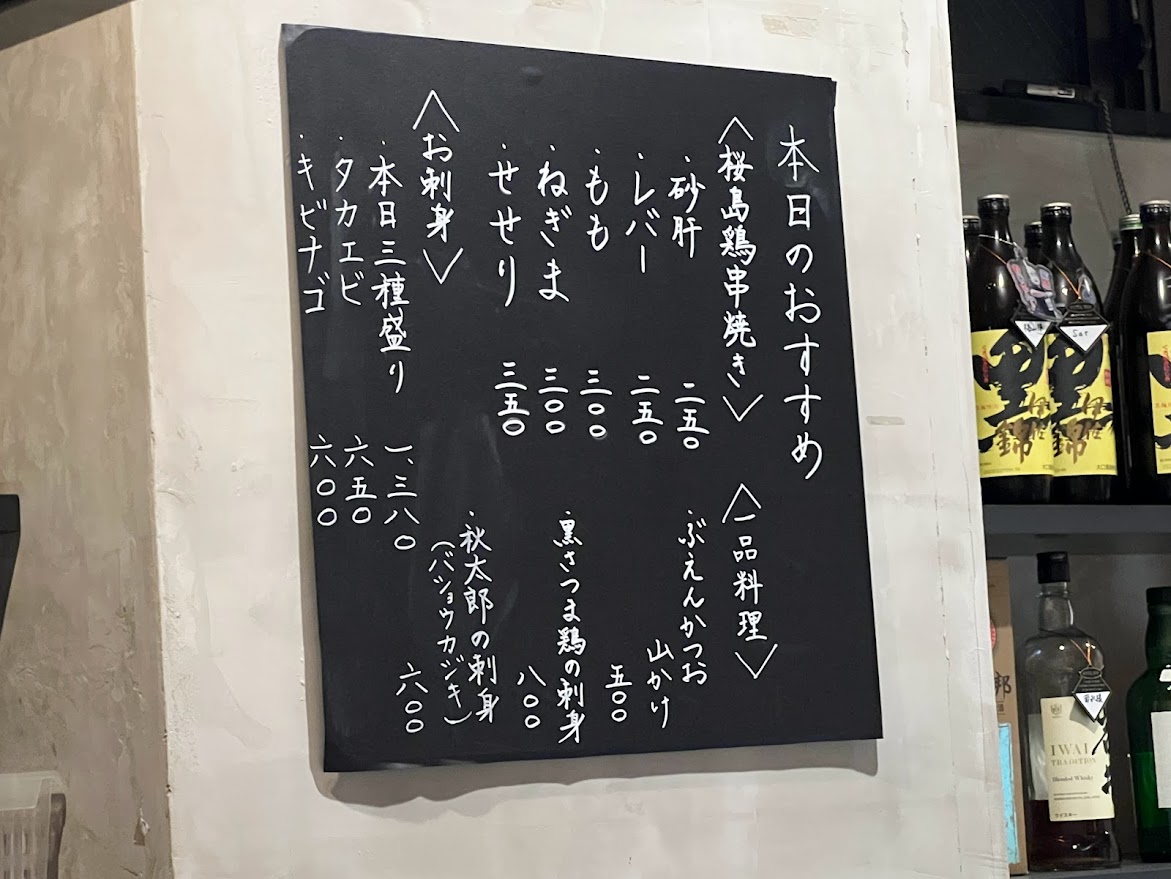 本日のおすすめ
〈桜島鶏串焼き〉
・砂肝 二五〇
・レバー 二五〇
・もも 三〇〇
・ねぎま 三〇〇
・せせり 三五〇
〈お刺身〉
・本日三種盛り 一、三八〇
・タカエビ 六五〇
・キビナゴ 六〇〇
〈一品料理〉
・ぶえんかつお
山かけ
五〇〇
・黒さつま鶏の刺身
八〇〇
・秋太郎の刺身
(バショウカジキ)
六〇〇
黒
伊佐
錦
黒
伊佐
錦
Sat
IWAI
TRADITION
Blended Whisky
ウイスキー